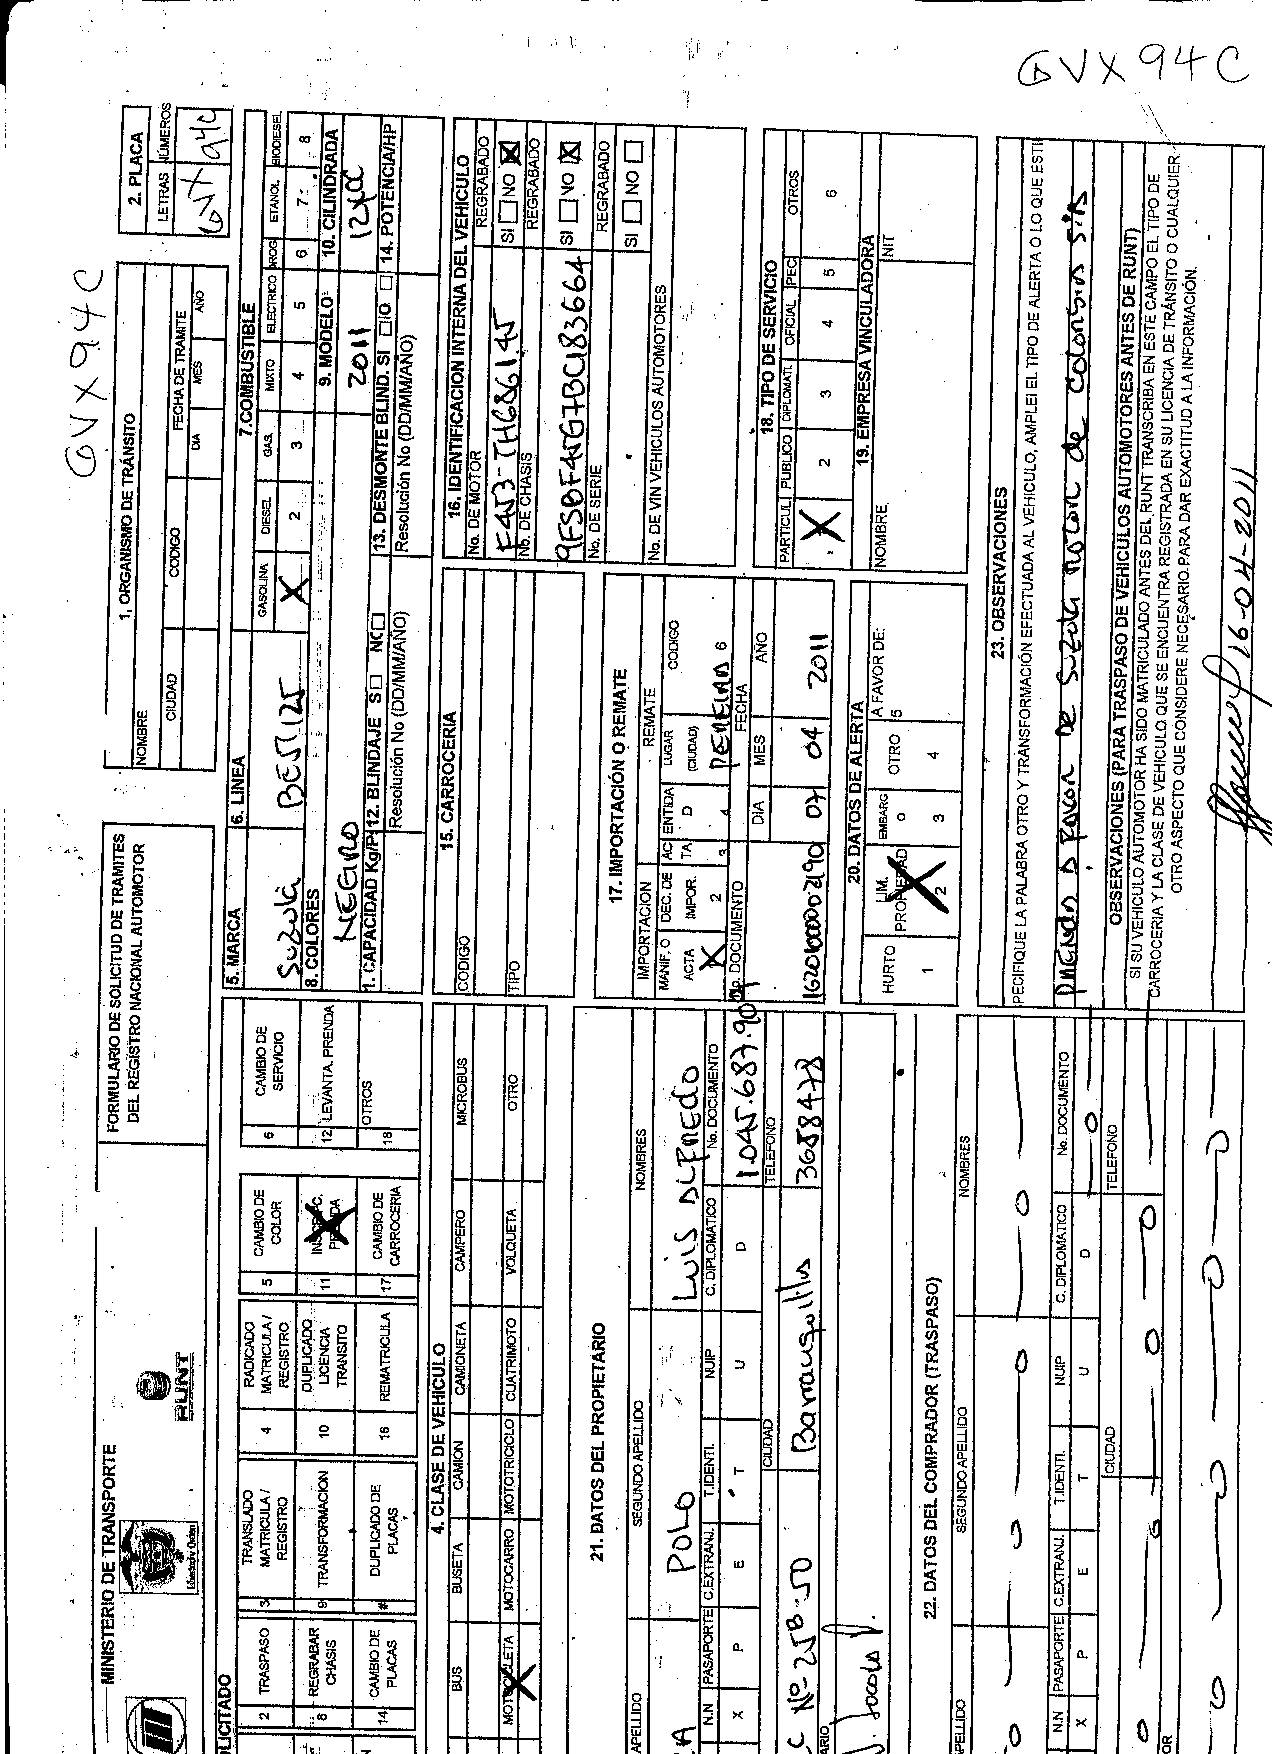 GVX94C
GVX94C
MINISTERIO DE TRANSPORTE
Libertad y Orden
RUNT
FORMULARIO DE SOLICITUD DE TRAMITES
DEL REGISTRO NACIONAL AUTOMOTOR
1. ORGANISMO DE TRÁNSITO
NOMBRE
CIUDAD
CODIGO
FECHA DE TRAMITE
DIA MES AÑO
2. PLACA
LETRAS NÚMEROS
GVX 94C
LICITADO
2 TRASPASO
3 TRANSLADO MATRICULA / REGISTRO
4 RADICADO MATRICULA / REGISTRO
5 CAMBIO DE COLOR
6 CAMBIO DE SERVICIO
8 REGRABAR CHASIS
9 TRANSFORMACION
10 DUPLICADO LICENCIA TRANSITO
11 X
12 LEVANTA. PRENDA
14 CAMBIO DE PLACAS
DUPLICADO DE PLACAS
16 REMATRICULA
17 CAMBIO DE CARROCERIA
18 OTROS
4. CLASE DE VEHICULO
BUS BUSETA CAMION CAMIONETA CAMPERO MICROBUS
MOTOCICLETA X MOTOCARRO MOTOTRICICLO CUATRIMOTO VOLQUETA OTRO
5. MARCA
Suzuki
6. LINEA
BE5/125
7.COMBUSTIBLE
GASOLINA DIESEL GAS. MIXTO ELECTRICO DROG ETANOL BIODIESEL
X 2 3 4 5 6 7 8
8. COLORES
NEGRO
9. MODELO
2011
10. CILINDRADA
124CC
1. CAPACIDAD Kg/P
12. BLINDAJE S NO
Resolución No (DD/MM/AÑO)
13. DESMONTE BLIND. SI
Resolución No (DD/MM/AÑO)
14. POTENCIA/HP
15. CARROCERIA
CODIGO
TIPO
16. IDENTIFICACION INTERNA DEL VEHICULO
No. DE MOTOR
REGRABADO
F453-TH686145
SI NO X
No. DE CHASIS
REGRABADO
9FSBF45G7BC183664
SI NO X
No. DE SERIE
REGRABADO
SI NO
No. DE VIN VEHICULOS AUTOMOTORES
17. IMPORTACIÓN O REMATE
IMPORTACION REMATE
MANIF. O ACTA DEC. DE IMPOR. AC TA ENTIDA D LUGAR (CIUDAD) CODIGO
X 2 3 4 PEREIRA 6
No. DOCUMENTO
FECHA
DIA MES AÑO
07 04 2011
18. TIPO DE SERVICIO
PARTICUL PUBLICO DIPLOMATI. OFICIAL PEC OTROS
X 2 3 4 5 6
19. EMPRESA VINCULADORA
NOMBRE NIT
20. DATOS DE ALERTA
HURTO LIM. PROPIEDAD EMBARG O OTRO A FAVOR DE:
1 X 2 3 4 5
21. DATOS DEL PROPIETARIO
APELLIDO SEGUNDO APELLIDO NOMBRES
POLO LUIS ALFREDO
N.N PASAPORTE C.EXTRANJ. T.IDENTI. NUIP C. DIPLOMATICO No. DOCUMENTO
X P E T U D 1.045.687.909
CIUDAD TELEFONO
Nº 25B-50 Barranquilla 3658478
22. DATOS DEL COMPRADOR (TRASPASO)
APELLIDO SEGUNDO APELLIDO NOMBRES
N.N PASAPORTE C.EXTRANJ. T.IDENTI. NUIP C. DIPLOMATICO No. DOCUMENTO
X P E T U D
CIUDAD TELEFONO
23. OBSERVACIONES
PECIFIQUE LA PALABRA OTRO Y TRANSFORMACIÓN EFECTUADA AL VEHICULO, AMPLEI EL TIPO DE ALERTA O LO QUE ESTI
A favor de Suzuki Motor de Colombia S.A
OBSERVACIONES (PARA TRASPASO DE VEHICULOS AUTOMOTORES ANTES DE RUNT)
SI SU VEHICULO AUTOMOTOR HA SIDO MATRICULADO ANTES DEL RUNT TRANSCRIBA EN ESTE CAMPO EL TIPO DE
CARROCERIA Y LA CLASE DE VEHICULO QUE SE ENCUENTRA REGISTRADA EN SU LICENCIA DE TRÁNSITO O CUALQUIER
OTRO ASPECTO QUE CONSIDERE NECESARIO PARA DAR EXACTITUD A LA INFORMACIÓN.
16-04-2011